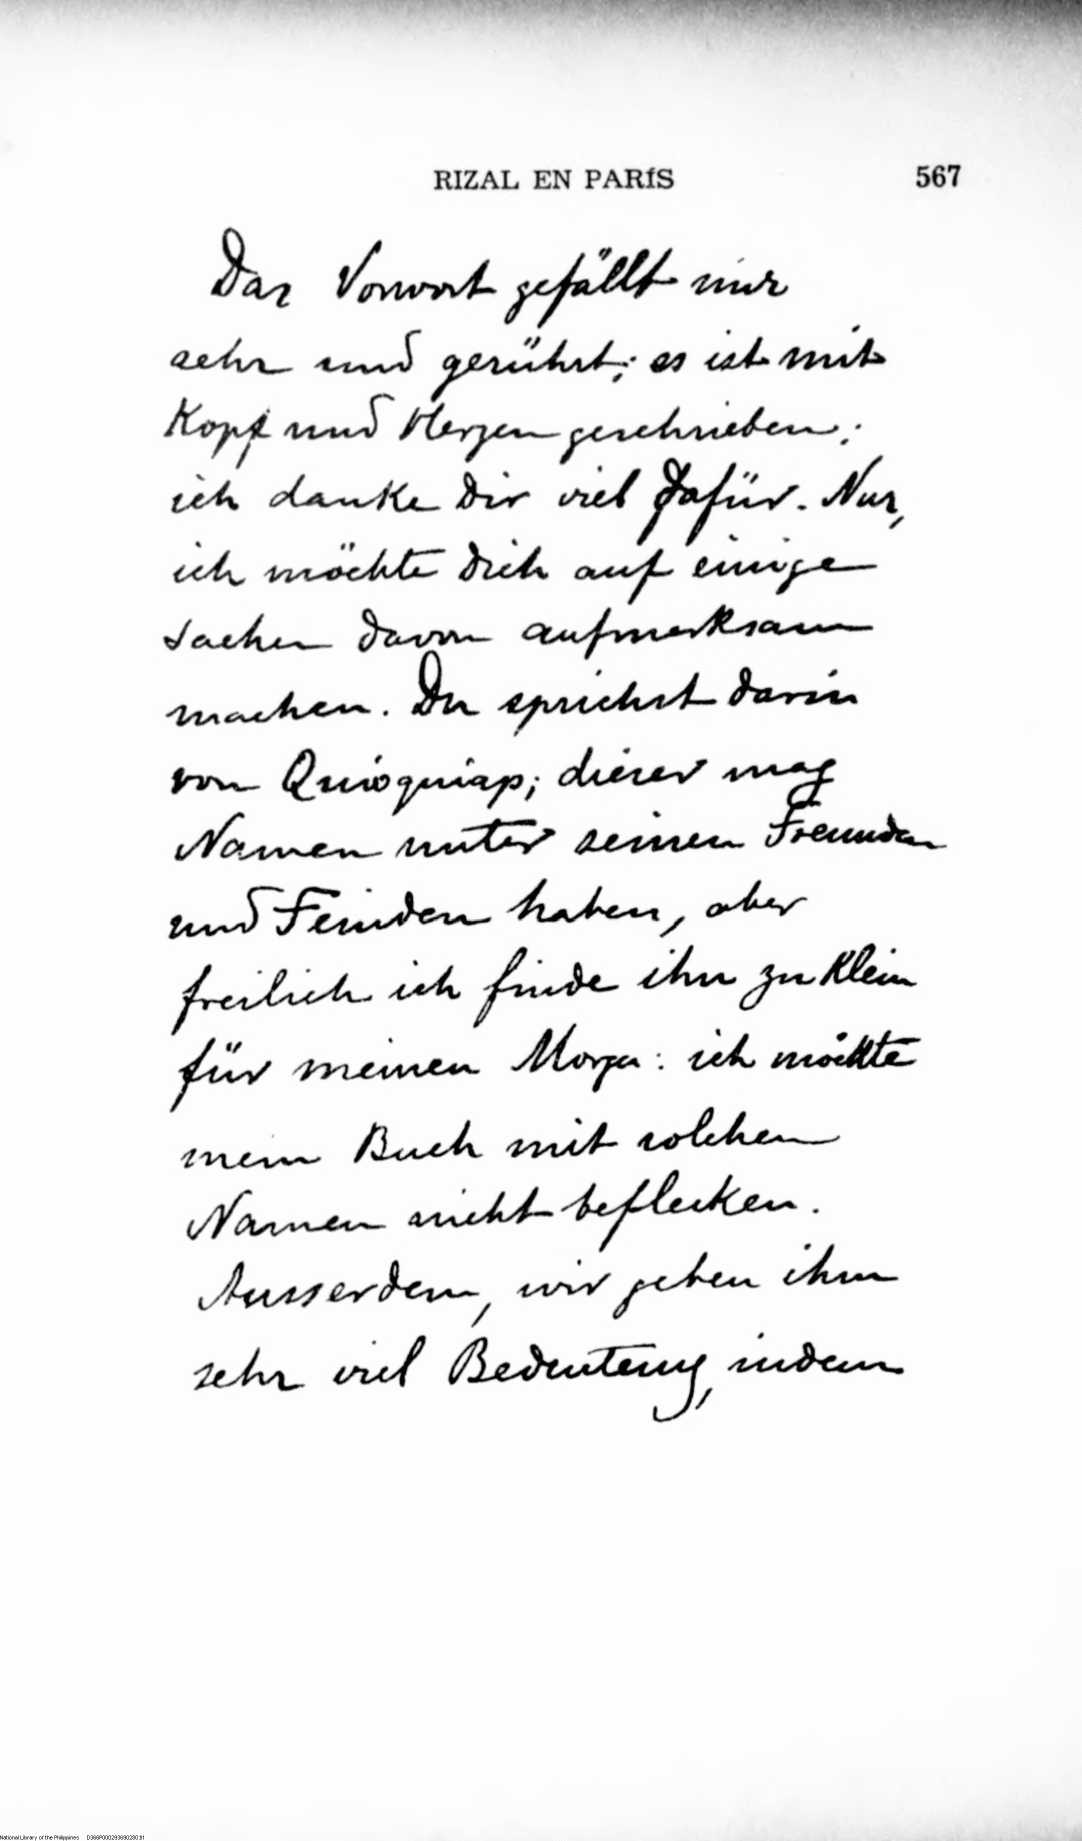 RIZAL EN PARÍS 567
Das Vorwort gefällt mir
sehr und gerührt; es ist mit
Kopf und Herzen geschrieben;
ich danke Dir viel dafür. Nur,
ich möchte Dich auf einige
Sachen davon aufmerksam
machen. Du sprichst darin
von Quioquiap; dieser mag
Namen unter seinen Freunden
und Feinden haben, aber
freilich ich finde ihn zu klein
für meinen Morga: ich möchte
mein Buch mit solchen
Namen nicht beflecken.
Ausserdem, wir geben ihm
sehr viel Bedeutung, indem
National Library of the Philippines